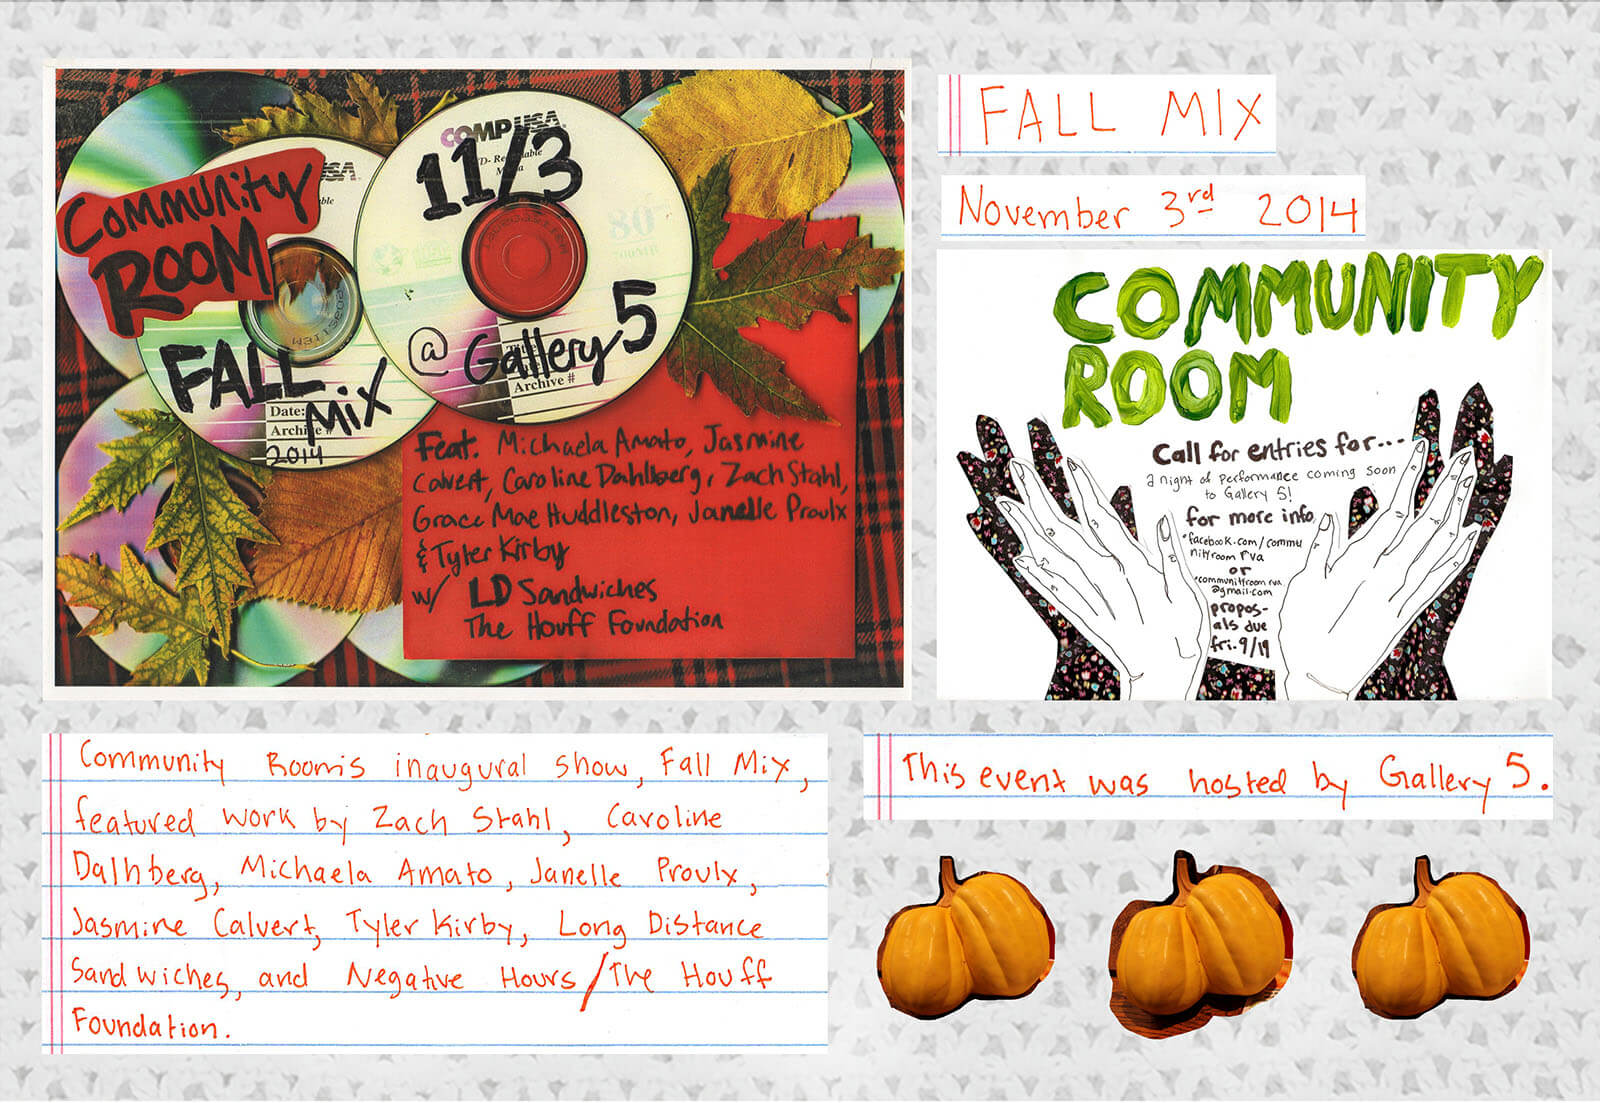 COMMUNITY
ROOM
USA
FALL
MIX
Date:
Archive #
2014
COMPUSA
11/3
80
700MB
@ Gallery 5
Archive #
Feat. Michaela Amato, Jasmine
Calvert, Caroline Dahlberg, Zach Stahl,
Grace Mae Huddleston, Janelle Proulx
& Tyler Kirby
w/ LD Sandwiches
The Houff Foundation
FALL MIX
November 3rd 2014
COMMUNITY
ROOM
Call for entries for...
a night of performance coming soon
to Gallery 5!
for more info
•facebook.com/commu
nityroom rva
or
•communityroom rva
@gmail.com
propos-
als due
fri. 9/19
Community Room's inaugural show, Fall Mix,
featured work by Zach Stahl, Caroline
Dalhberg, Michaela Amato, Janelle Proulx,
Jasmine Calvert, Tyler Kirby, Long Distance
Sandwiches, and Negative Hours/The Houff
Foundation.
This event was hosted by Gallery 5.